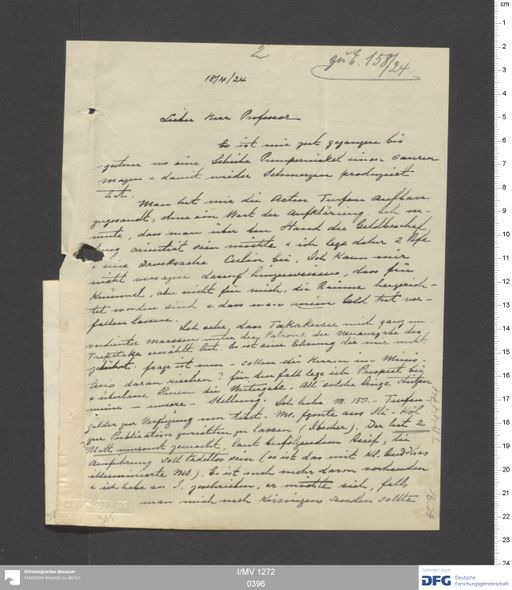 2
gu E. 158/24
18/4/24
Lieber Herr Professor
Es ist mir gut gegangen bis
gestern wo eine Scheibe Pumpernickel einen sauren
Magen & damit wieder Schmerzen produziert
hat.
Man hat mir die Acten Turfan Aufbau
zugesandt, ohne ein Wort der Aufklärung. Ich ver-
mute, dass man über den Stand der Geldbeschaf
fung orientiert sein möchte & ich lege daher 2 Briefe
& eine Drucksache bei. Ich kann mir
nicht versagen darauf hinzuweisen, dass für
Kümmel, aber nicht für mich, die Räume hergerich-
tet worden sind & dass man mein Geld hat ver-
fallen lassen.
Ich sehe, dass Takakusu mich ganz un-
verdienter Massen unter die Patrone der Neuausgabe des
Tripitaka erwählt hat. Es ist eine Ehrung die mir nicht
gebührt. Frage ist nun - sollen die Herren im Minis-
terium daran riechen? Für den Fall lege ich Prospect bei
& überlasse Ihnen die Weitergabe. All solche Dinge stützen
meine - unsere - Stellung. Ich habe M. 150.- Turfan
gelder zur Verfügung
zur Publication zurichten zu lassen. Der hat 2
Blatt umsonst gemacht, laut beifolgendem Brief; die
Ausführung soll tadellos sein (es ist das mit kl. Buddhas
illuminierte MS.). Es ist noch mehr davon vorhanden
& ich habe an I. geschrieben, er möchte sich, falls
man mich nach Kissingen senden sollte
Ethnologisches Museum
Staatliche Museen zu Berlin
I/MV 1272
0396
Gefördert durch
DFG
Deutsche
Forschungsgemeinschaft
cm
1
2
3
4
5
6
7
8
9
10
11
12
13
14
15
16
17
18
19
20
21
22
23
24